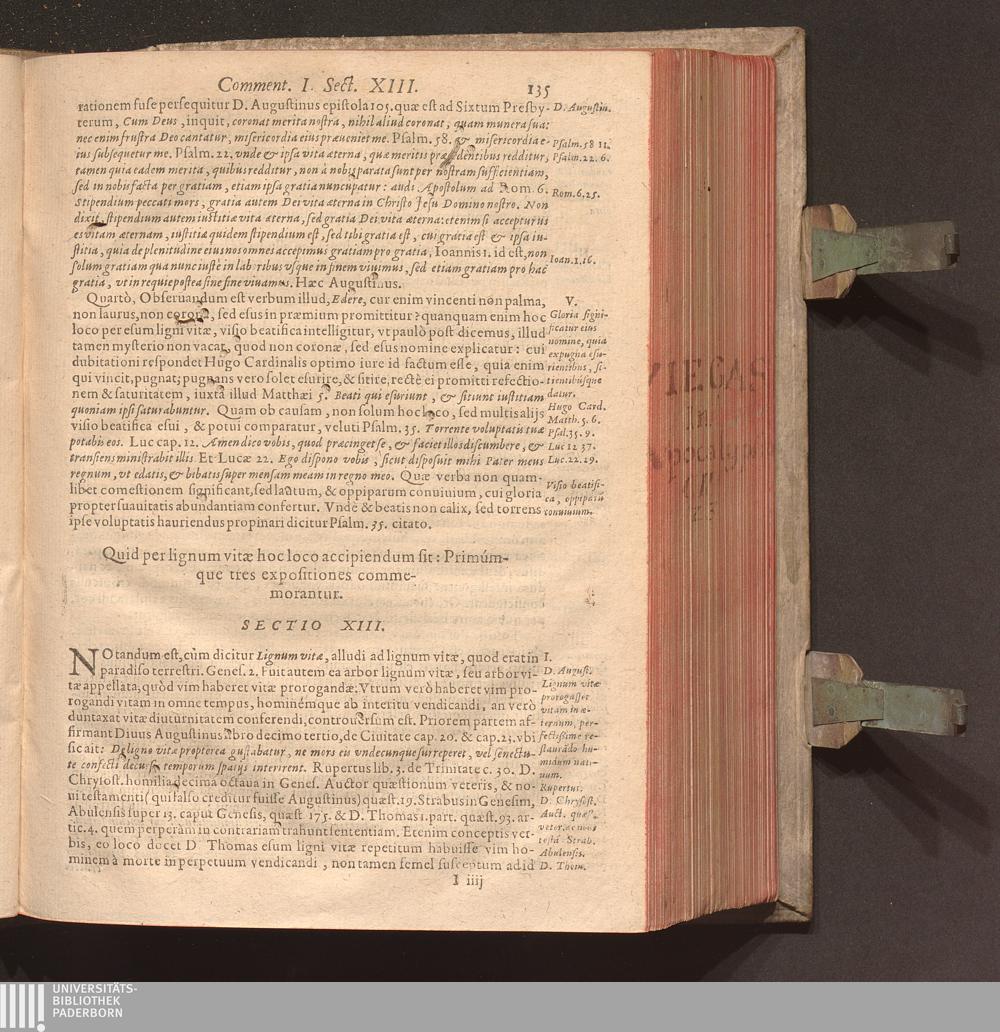 Comment. I. Sect. XIII. 135
rationem fuse persequitur D. Augustinus epistola 105. quæ est ad Sixtum Presby-
terum, Cum Deus, inquit, coronat merita nostra, nihil aliud coronat, quam munera sua:
nec enim frustra Deo cantatur, misericordia eius præueniet me. Psalm. 58. & misericordia e-
ius subsequetur me. Psalm. 22. vnde & ipsa vita æterna, quæ meritis præcedentibus redditur,
tamen quia eadem merita, quibus redditur, non à nobis parata sunt per nostram sufficientiam,
sed in nobis facta per gratiam, etiam ipsa gratia nuncupatur: audi Apostolum ad Rom. 6.
Stipendium peccati mors, gratia autem Dei vita æterna in Christo Jesu Domino nostro. Non
dixit, stipendium autem iustitiæ vita æterna, sed gratia Dei vita æterna: etenim si accepturus
es vitam æternam, iustitiæ quidem stipendium est, sed tibi gratia est, cui gratia est & ipsa iu-
stitia, quia de plenitudine eius nos omnes accepimus gratiam pro gratia, Ioannis 1. id est, non
solum gratiam qua nunc iustè in laboribus vsque in finem viuimus, sed etiam gratiam pro hac
gratia, vt in requie postea sine fine viuamus. Hæc Augustinus.
Quartò, Obseruandum est verbum illud, Edere, cur enim vincenti non palma,
non laurus, non corona, sed esus in præmium promittitur? quanquam enim hoc
loco per esum ligni vitæ, visio beatifica intelligitur, vt paulò post dicemus, illud
tamen mysterio non vacat, quod non coronæ, sed esus nomine explicatur: cui
dubitationi respondet Hugo Cardinalis optimo iure id factum esse, quia enim
qui vincit, pugnat; pugnans vero solet esurire, & sitire, rectè ei promitti refectio-
nem & saturitatem, iuxtà illud Matthæi 5. Beati qui esuriunt, & sitiunt iustitiam
quoniam ipsi saturabuntur. Quam ob causam, non solum hoc loco, sed multis alijs
visio beatifica esui, & potui comparatur, veluti Psalm. 35. Torrente voluptatis tuæ
potabis eos. Luc cap. 12. Amen dico vobis, quod præcinget se, & faciet illos discumbere, &
transiens ministrabit illis. Et Lucæ 22. Ego dispono vobis, sicut disposuit mihi Pater meus
regnum, vt edatis, & bibatis super mensam meam in regno meo. Quæ verba non quam-
libet comestionem significant, sed lautum, & oppiparum conuiuium, cui gloria
propter suauitatis abundantiam confertur. Vndè & beatis non calix, sed torrens
ipse voluptatis hauriendus propinari dicitur Psalm. 35. citato.
D. Augustin.
Psalm. 58 11.
Psalm. 22. 6.
Rom. 6. 25.
Ioan. 1. 16.
V.
Gloria signi-
ficatur eius
nomine, quia
expugna esu-
rientibus, si-
tientibúsque
datur.
Hugo Card.
Matth. 5. 6.
Psal. 35. 9.
Luc 12 37.
Luc. 22. 29.
Visio beatifi-
ca, oppiparū
conuiuium.
Quid per lignum vitæ hoc loco accipiendum sit: Primúm-
que tres expositiones comme-
morantur.
SECTIO XIII.
NOtandum est, cùm dicitur Lignum vitæ, alludi ad lignum vitæ, quod erat in
paradiso terrestri. Genes. 2. Fuit autem ea arbor lignum vitæ, seu arbor vi-
tæ appellata, quòd vim haberet vitæ prorogandæ: Vtrum verò haberet vim pro-
rogandi vitam in omne tempus, hominémque ab interitu vendicandi, an verò
duntaxat vitæ diuturnitatem conferendi, controuersum est. Priorem partem af-
firmant Diuus Augustinus libro decimo tertio, de Ciuitate cap. 20. & cap. 23. vbi
sic ait: De ligno vitæ propterea gustabatur, ne mors ei vndecunque surreperet, vel senectu-
te confecti decurso temporum spatijs interirent. Rupertus lib. 3. de Trinitate c. 30. D.
Chrysost. homilia decima octaua in Genes. Auctor quæstionum veteris, & no-
ui testamenti (qui falso creditur fuisse Augustinus) quæst. 19. Strabus in Genesim,
Abulensis super 13. caput Genesis, quæst 175. & D. Thomas 1. part. quæst. 93. ar-
tic. 4. quem perperàm in contrariam trahunt sententiam. Etenim conceptis ver-
bis, eo loco docet D Thomas esum ligni vitæ repetitum habuisse vim ho-
minem à morte in perpetuum vendicandi, non tamen semel susceptum ad id
I.
D. August.
Lignum vitæ
prorogasset
vitam in æ-
ternum, per-
fectissime re-
staurādo hu-
midum nati-
uum.
Rupertus.
D. Chrysost.
Auct. quæst.
veter. ac noui
testā. Strab.
Abulensis.
D. Thom.
I iiij
VIEGAS
In
UNIVERSITÄTS-
BIBLIOTHEK
PADERBORN